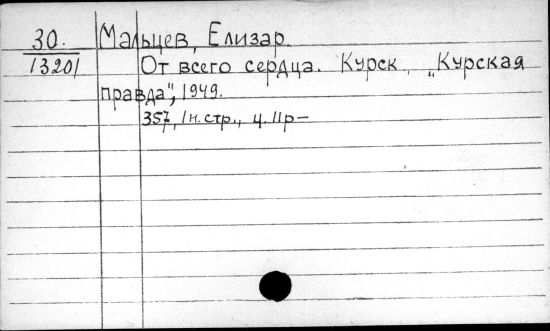 30. Мальцев, Елизар.
13201 От всего сердца. Курск, „Курская
правда“, 1949.
357, 1 н. стр., ц. 11 р–